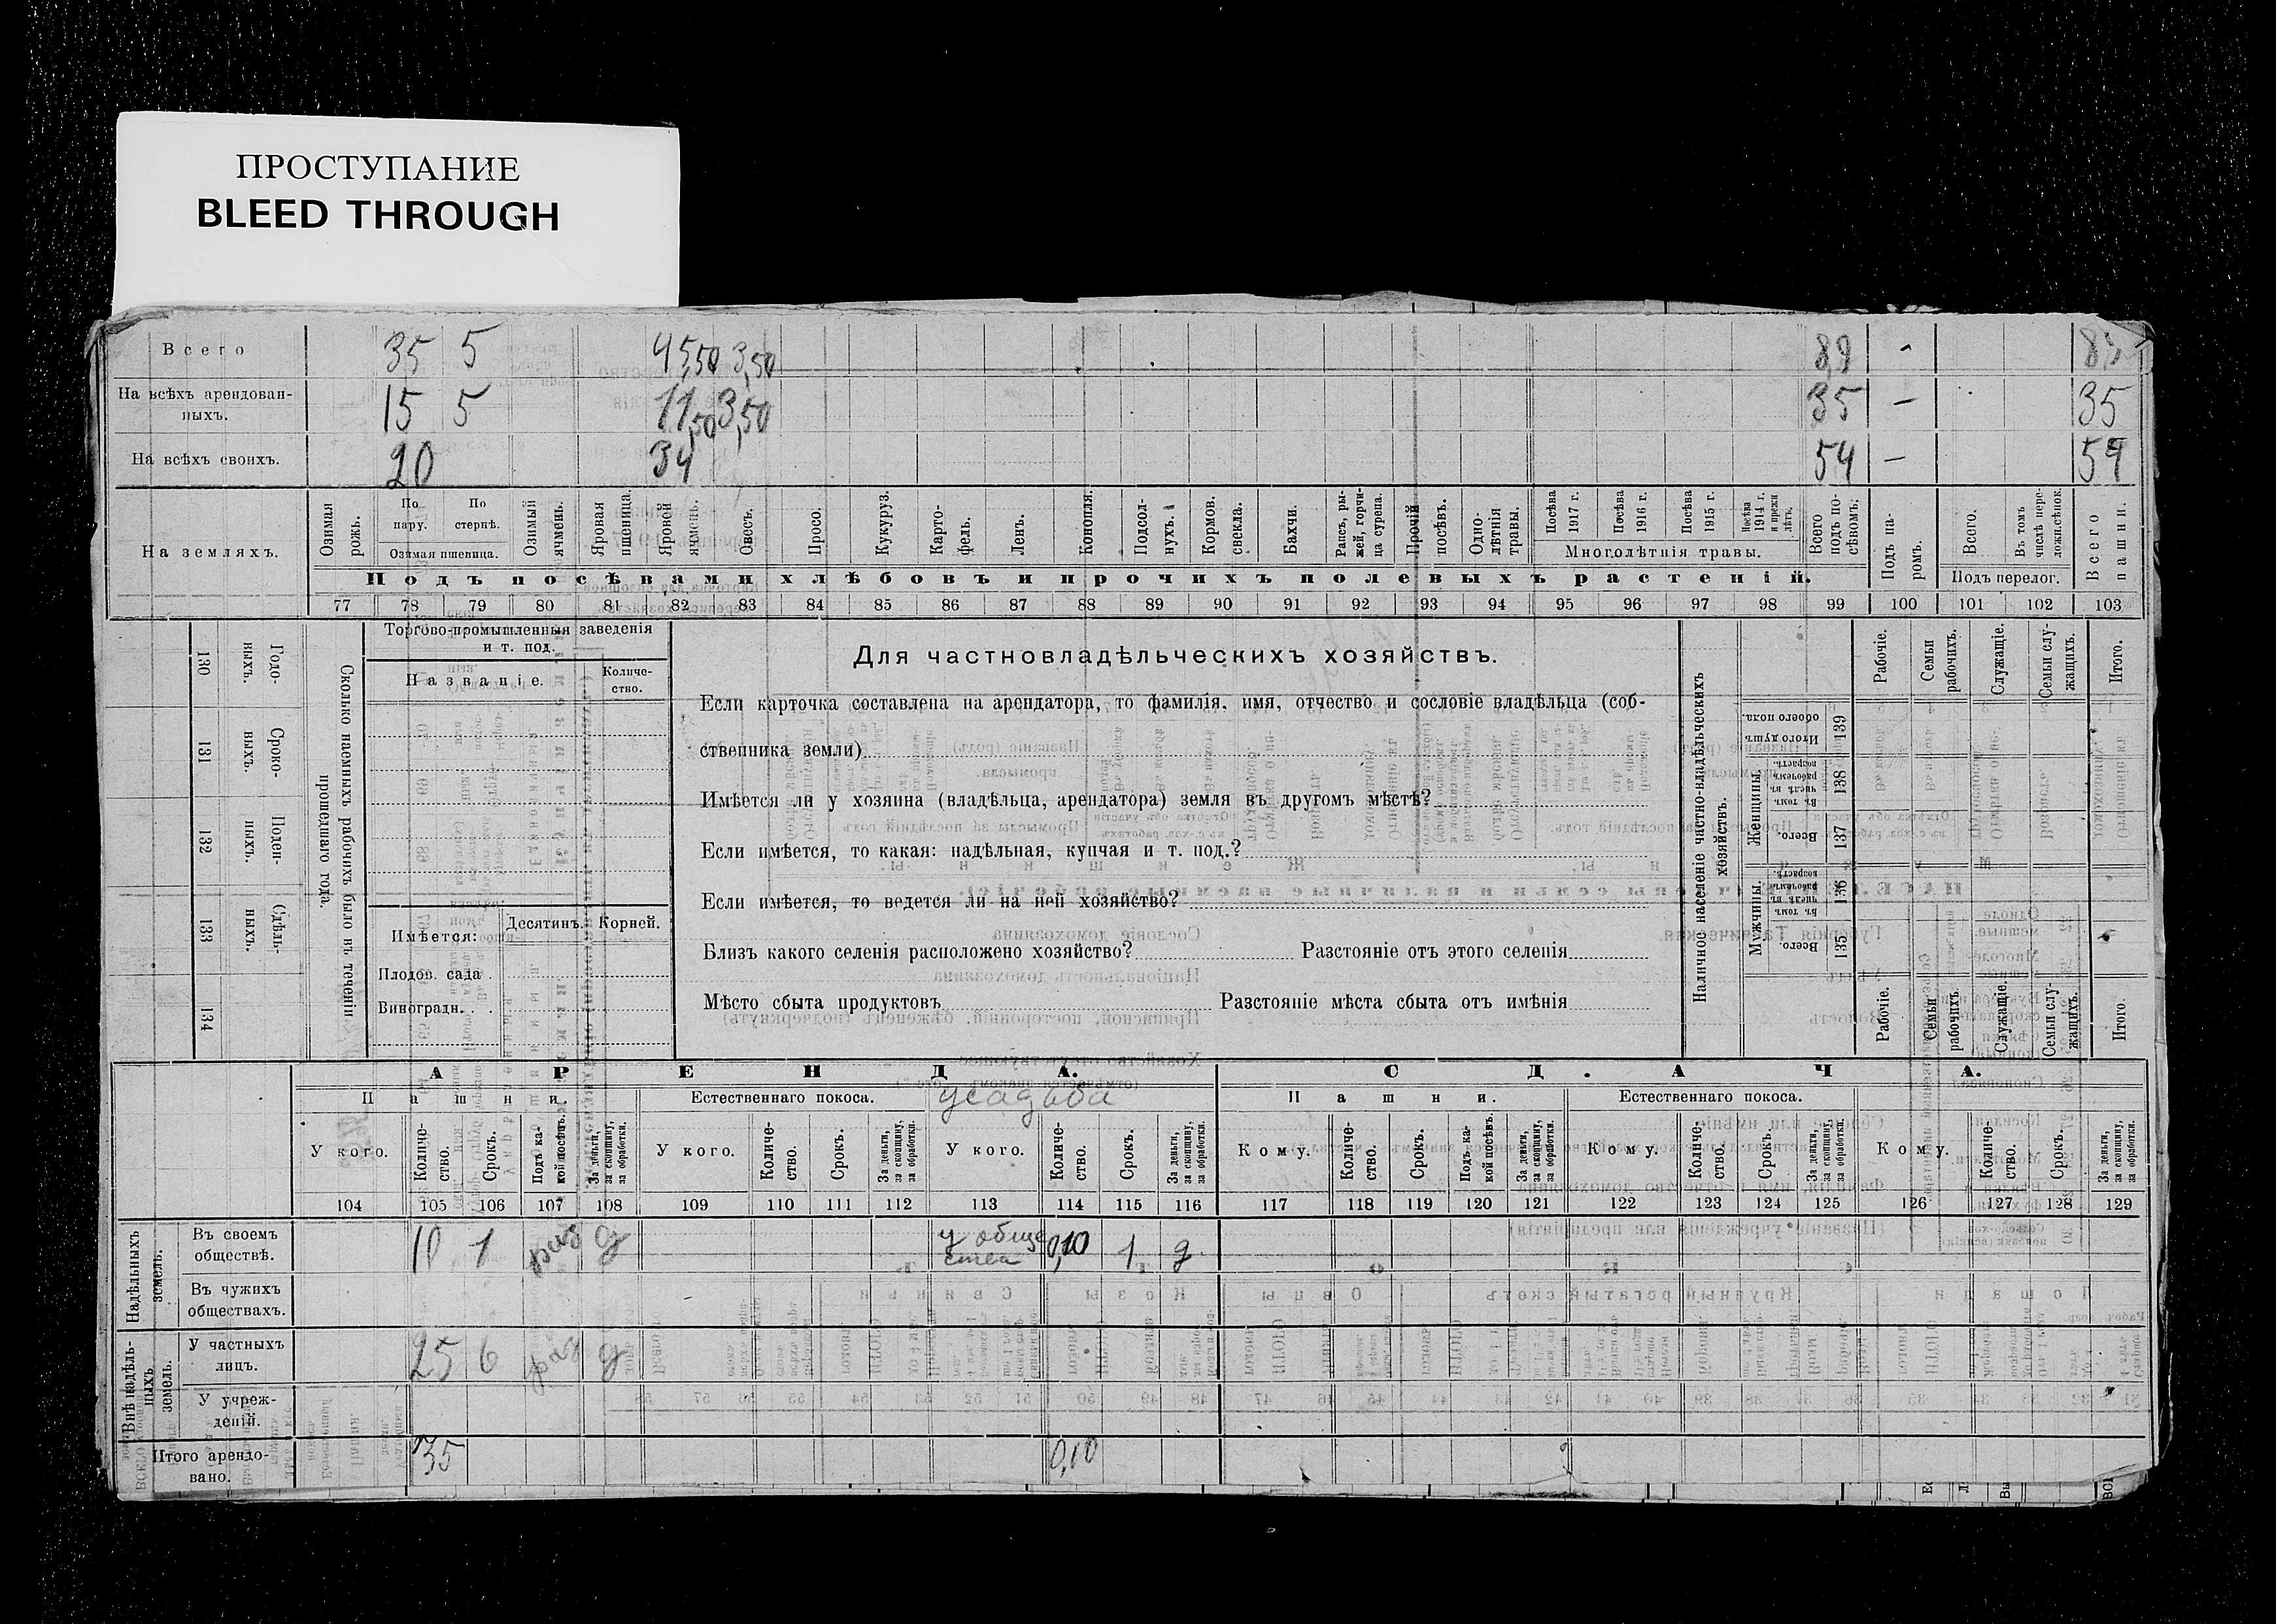 ПРОСТУПАНИЕ
BLEED THROUGH
Всего 35 5 45,50 3,50 89 - 89
На всѣхъ арендованныхъ. 15 5 11,50 3,50 35 — 35
На всѣхъ своихъ. 20 34 54 — 54
На земляхъ.
Озимая рожь.
По пару.
По стернѣ.
Озимая пшеница.
Озимый ячмень.
Яровая пшеница.
Яровой ячмень.
Овесъ.
Просо.
Кукуруз.
Карто-фель.
Ленъ.
Конопля.
Подсол-нухъ.
Кормов. свекла.
Бахчи.
Рапсъ, ры-жей, горчи-ца сурепа.
Прочій посѣвъ.
Одно-лѣтнія травы.
Посѣва 1917 г.
Посѣва 1916 г.
Посѣва 1915 г.
Посѣва 1914 г. и прежн лѣтъ.
Многолѣтнія травы.
Всего подъ по-сѣвомъ.
Подъ па-ромъ.
Всего.
Въ томъ числѣ пере-ложн.сѣнок.
Подъ перелог.
Всего пашни.
Подъ посѣвами хлѣбовъ и прочихъ полевыхъ растеній.
77 78 79 80 81 82 83 84 85 86 87 88 89 90 91 92 93 94 95 96 97 98 99 100 101 102 103
130 Годо-выхъ.
131 Сроко-выхъ.
132 Поден-ныхъ.
133 Сдѣль-ныхъ.
134
Сколько наемныхъ рабочихъ было въ теченіи прошедшаго года.
Торгово-промышленныя заведенія
и т. под.
Названіе.
Количе-ство.
Имѣется:
Десятинъ. Корней.
Плодов. сада
Виноградн.
Для частновладѣльческихъ хозяйствъ.
Если карточка составлена на арендатора, то фамилія, имя, отчество и сословіе владѣльца (соб-
ственника земли)
Имѣется ли у хозяина (владѣльца, арендатора) земля въ другомъ мѣстѣ?
Если имѣется, то какая: надѣльная, купчая и т. под.?
Если имѣется, то ведется ли на ней хозяйство?
Близъ какого селенія расположено хозяйство? Разстояніе отъ этого селенія
Мѣсто сбыта продуктовъ Разстояніе мѣста сбыта отъ имѣнія
Наличное населеніе частно-владѣльческихъ хозяйствъ.
Итого душъ обоего пола. 139
Женщины.
Въ томъ числѣ въ рабочемъ возрастѣ. 138
Всего. 137
Мужчины.
Въ томъ числѣ въ рабочемъ возрастѣ. 136
Всего. 135
Рабочіе.
Семьи рабочихъ.
Служащіе.
Семьи слу-жащихъ.
Итого.
Рабочіе.
Семьи рабочихъ.
Служащіе.
Семьи слу-жащихъ.
Итого.
АРЕНДА. СДАЧА.
Пашни. Естественнаго покоса. усадьба Пашни. Естественнаго покоса.
У кого. Количе-ство. Срокъ. Подъ ка-кой посѣвъ. За деньги, за скопщину, за обработки.
У кого. Количе-ство. Срокъ. За деньги, за скопщину, за обработки.
У кого. Количе-ство. Срокъ. За деньги, за скопщину, за обработки.
Кому. Количе-ство. Срокъ. Подъ ка-кой посѣвъ. За деньги, за скопщину, за обработки.
Кому. Количе-ство. Срокъ. За деньги, за скопщину, за обработки.
Кому. Количе-ство. Срокъ. За деньги, за скопщину, за обработки.
104 105 106 107 108 109 110 111 112 113 114 115 116 117 118 119 120 121 122 123 124 125 126 127 128 129
Надѣльныхъ земель.
Въ своемъ обществѣ. 10 1 раз д у обще ства 0,10 1 д
Въ чужихъ обществахъ.
Внѣ надѣль-ныхъ земель.
У частныхъ лицъ. 25 6 раз д
У учреж-деній.
Итого арендо-вано. 35 0,10